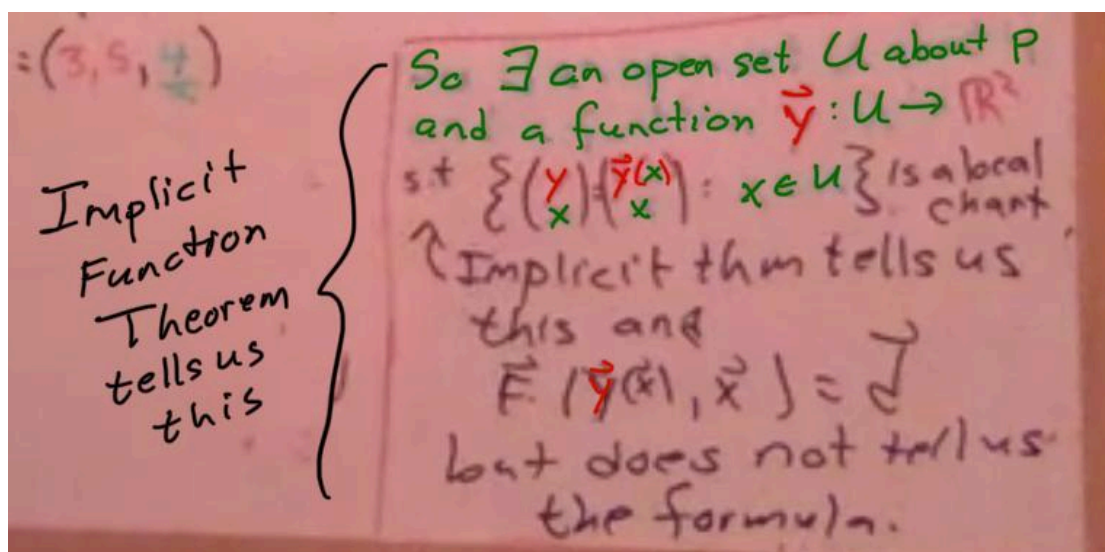 =(3,5,4/2)
Implicit
Function
Theorem
tells us
this
So ∃ an open set U about P
and a function y⃗ : U → ℝ²
s.t {(y x)=(y⃗(x) x) : x ∈ U} is a local
chart
Implicit thm tells us
this and
F⃗(y⃗(x⃗), x⃗) = d⃗
but does not tell us
the formula.